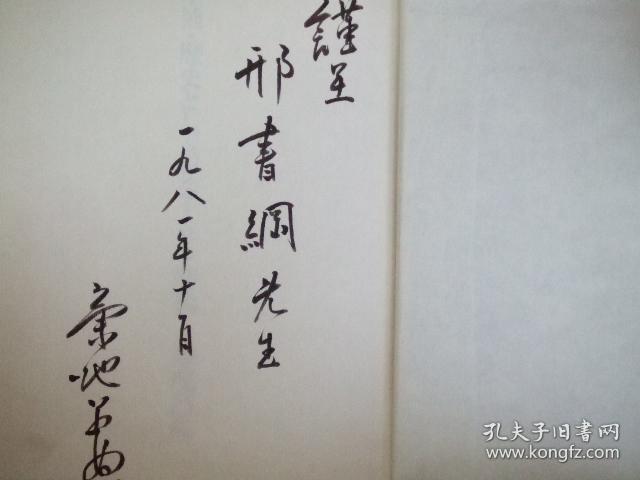 謹呈
邢書綱先生
一九八一年十月
菊地
孔夫子旧書网
www.kongfz.com